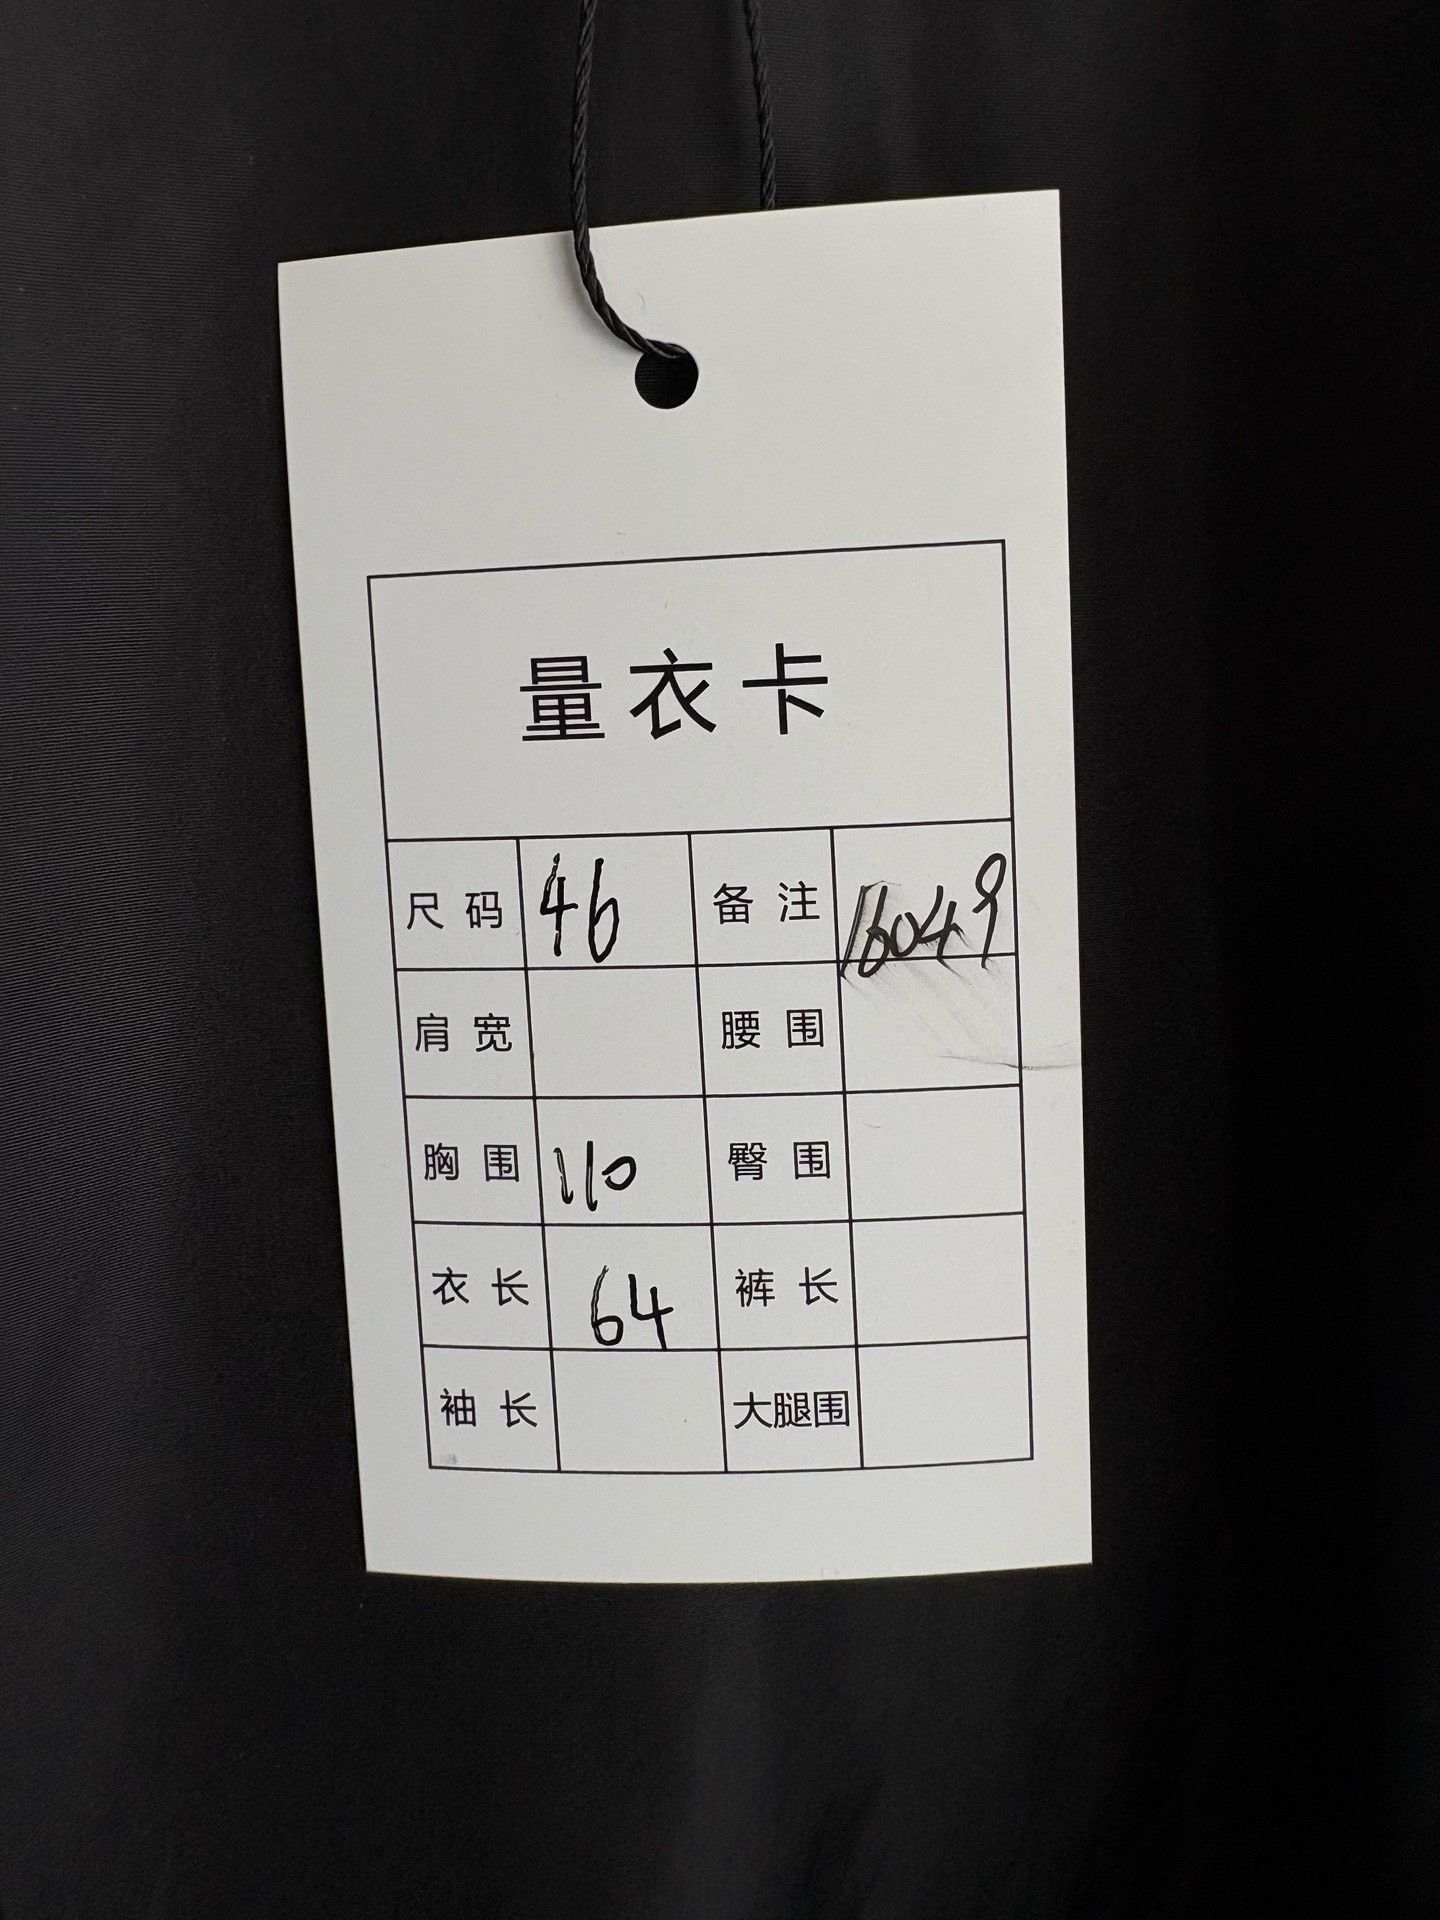 量衣卡
尺码 46 备注 16049
肩宽 腰围
胸围 110 臀围
衣长 64 裤长
袖长 大腿围